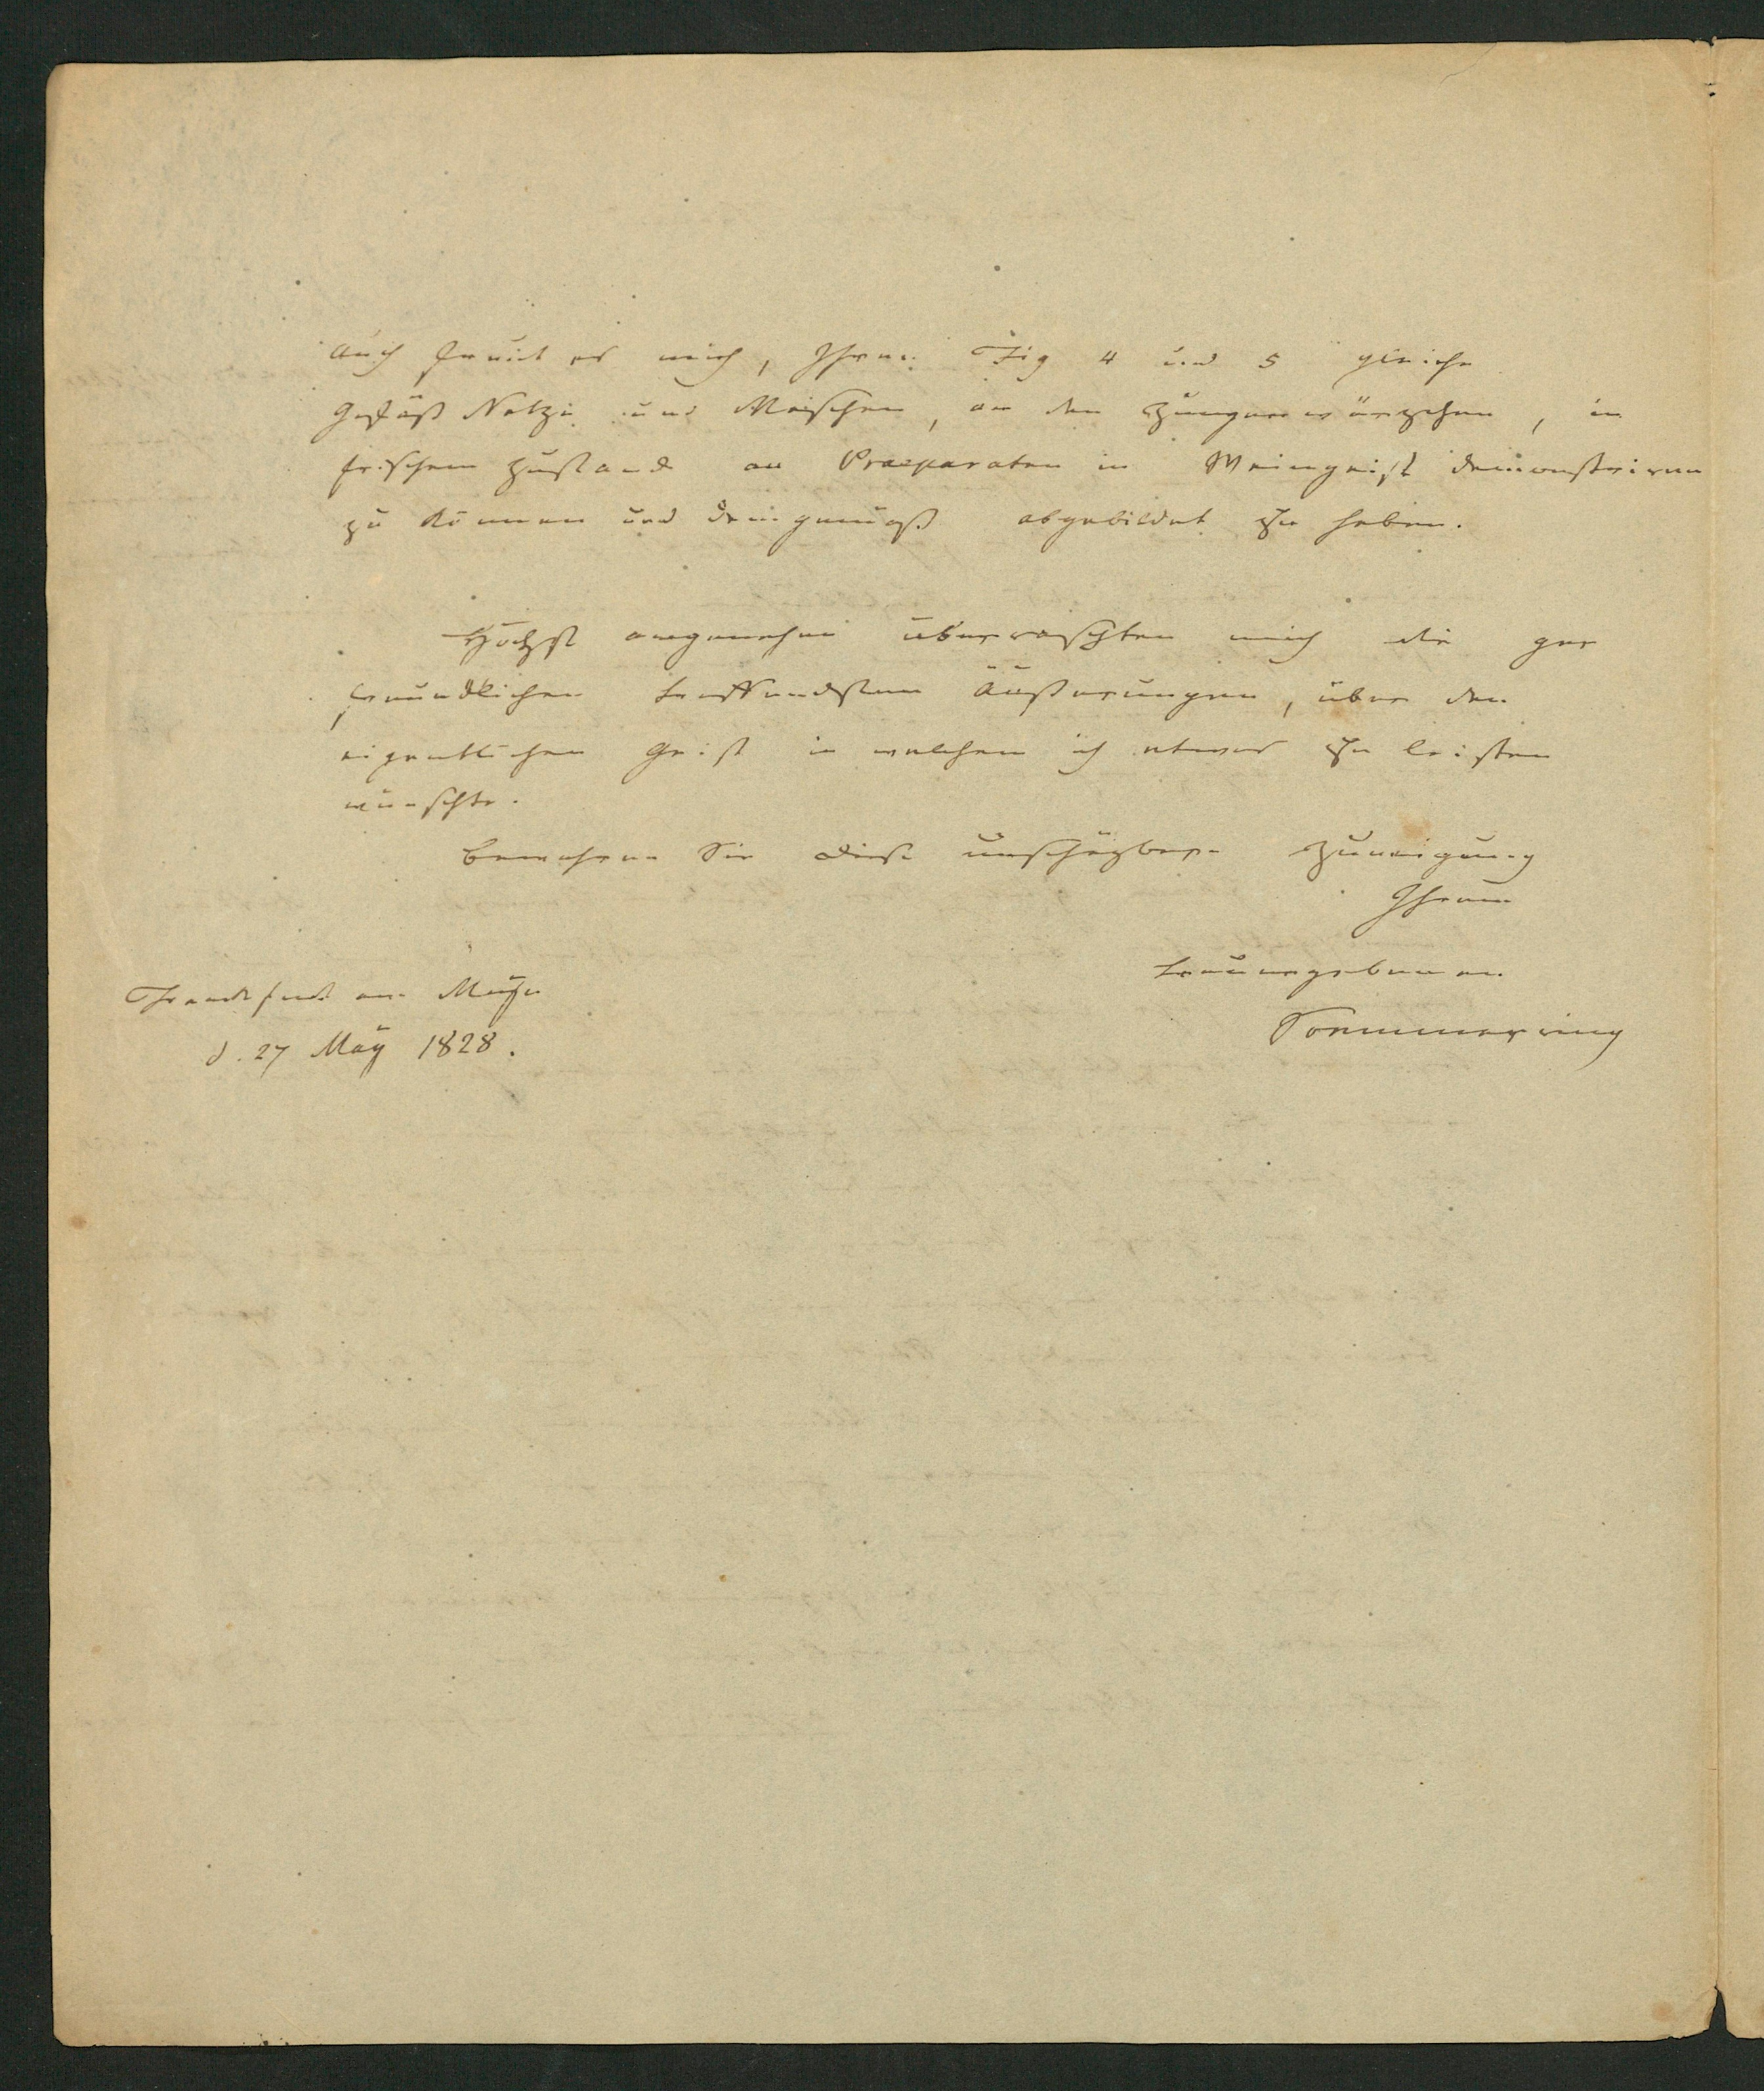 Auch freut es mich, Ihren Fig 4 und 5 gleiche
Gefäß Netze und Maschen, an den Zungenwärzchen, in
frischem Zustande an Praeparaten in Weingeist demonstriren
zu können und demgemäß abgebildet zu haben.
Höchst angenehm überraschten mich die gar
freundlichen treffendsten Äußerungen, über den
eigentlichen Geist in welchem ich etwas zu leisten
wünschte.
Bewahren Sie diese unschäzbare Zuneigung
Ihrem
treuergebenen
Soemmerring
Frankfurt am Mayn
d. 27 May 1828.